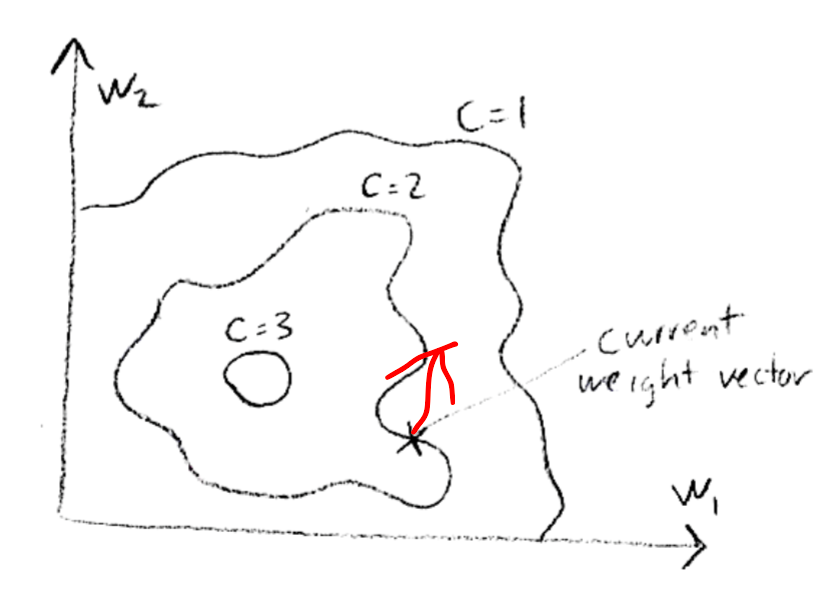 W2
C=1
C=2
C=3
current
weight vector
W1